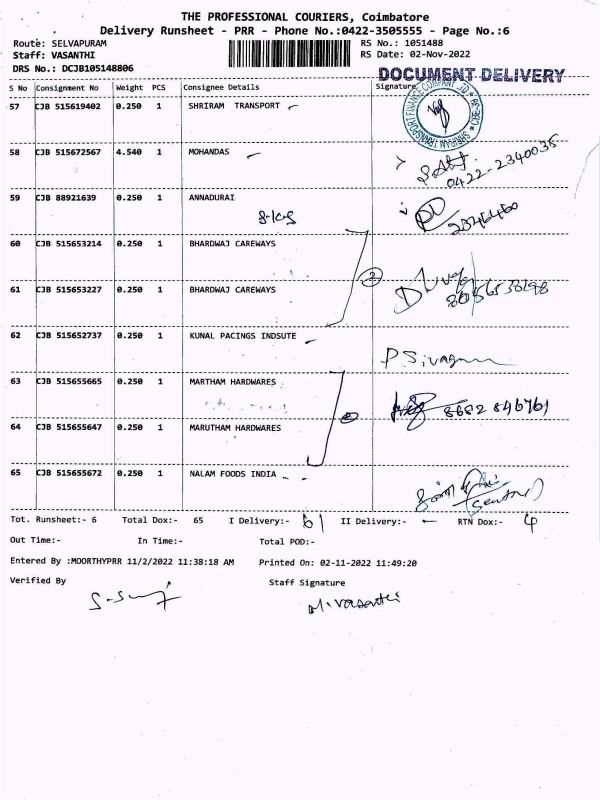 THE PROFESSIONAL COURIERS, Coimbatore
Delivery Runsheet - PRR - Phone No.:0422-3505555 - Page No.:6
Route: SELVAPURAM RS No.: 1051488
Staff: VASANTHI RS Date: 02-Nov-2022
DRS No.: DCJB105148806
DOCUMENT DELIVERY
S No Consignment No Weight PCS Consignee Details Signature
57 CJB 515619402 0.250 1 SHRIRAM TRANSPORT
58 CJB 515672567 4.540 1 MOHANDAS
0422-2340035
59 CJB 88921639 0.250 1 ANNADURAI
2346460
60 CJB 515653214 0.250 1 BHARDWAJ CAREWAYS
2
61 CJB 515653227 0.250 1 BHARDWAJ CAREWAYS
62 CJB 515652737 0.250 1 KUNAL PACINGS INDSUTE
63 CJB 515655665 0.250 1 MARTHAM HARDWARES
8682 846761
64 CJB 515655647 0.250 1 MARUTHAM HARDWARES
65 CJB 515655672 0.250 1 NALAM FOODS INDIA
Tot. Runsheet:- 6 Total Dox:- 65 I Delivery:- 61 II Delivery:- — RTN Dox:- 4
Out Time:- In Time:- Total POD:-
Entered By :MOORTHYPRR 11/2/2022 11:38:18 AM Printed On: 02-11-2022 11:49:20
Verified By Staff Signature
M. Vasanthi